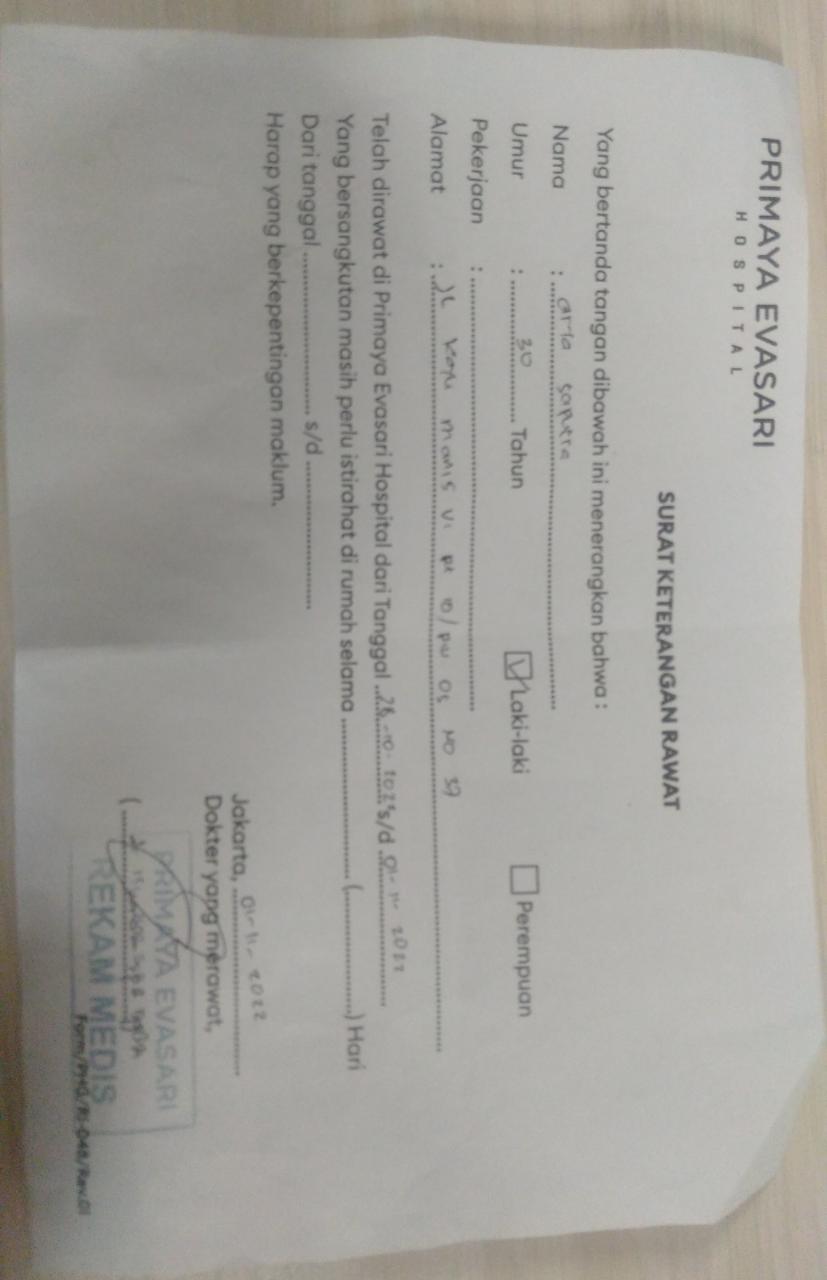 PRIMAYA EVASARI
HOSPITAL
SURAT KETERANGAN RAWAT
Yang bertanda tangan dibawah ini menerangkan bahwa :
Nama : aria saputra
Umur : 30 Tahun Laki-laki Perempuan
Pekerjaan :
Alamat : JL kayu manis VI 10/ 05 NO 37
Telah dirawat di Primaya Evasari Hospital dari Tanggal s/d 01-11-2022
Yang bersangkutan masih perlu istirahat di rumah selama (............) Hari
Dari tanggal s/d
Harap yang berkepentingan maklum.
Jakarta, 01-11-2022
Dokter yang merawat,
PRIMAYA EVASARI
REKAM MEDIS
Form/PHG/RI-048/Rev.01